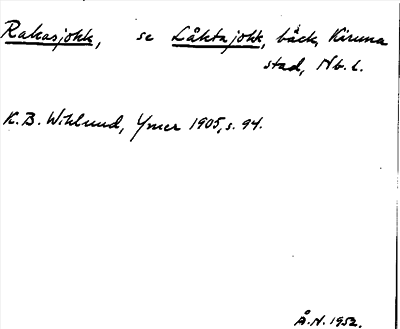 Rakasjokk, se Låktajokk, bäck, Kiruna
stad, Nb. l.
K. B. Wiklund, Ymer 1905, s. 94.
Å. N. 1952.